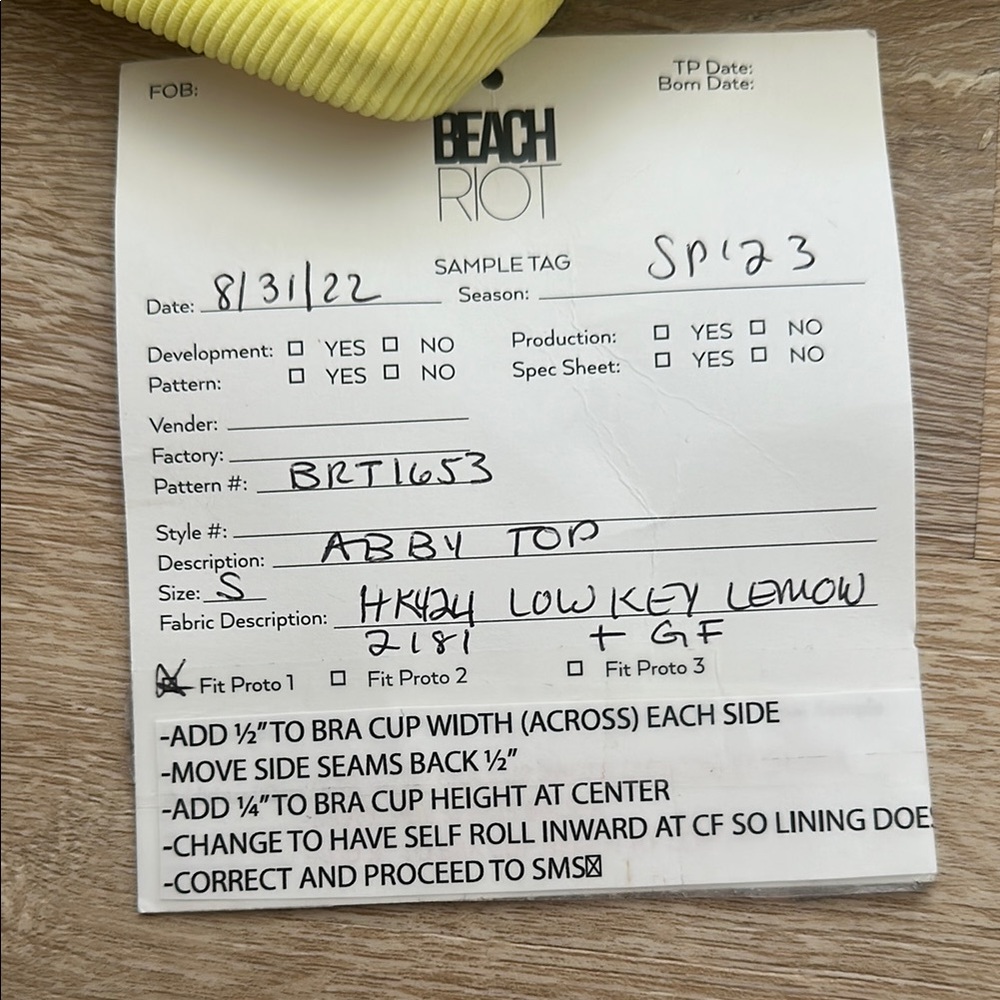 FOB:
TP Date:
Born Date:
BEACH
RIOT
SAMPLE TAG
Date: 8/31/22
Season: SP'23
Development: ☐ YES ☐ NO
Production: ☐ YES ☐ NO
Pattern: ☐ YES ☐ NO
Spec Sheet: ☐ YES ☐ NO
Vender:
Factory:
Pattern #: BRT1653
Style #:
Description: ABBY TOP
Size: S
Fabric Description: HK424 LOW KEY LEMON
2181 + GF
☒ Fit Proto 1 ☐ Fit Proto 2 ☐ Fit Proto 3
-ADD ½" TO BRA CUP WIDTH (ACROSS) EACH SIDE
-MOVE SIDE SEAMS BACK ½"
-ADD ¼" TO BRA CUP HEIGHT AT CENTER
-CHANGE TO HAVE SELF ROLL INWARD AT CF SO LINING DOE
-CORRECT AND PROCEED TO SMS☒